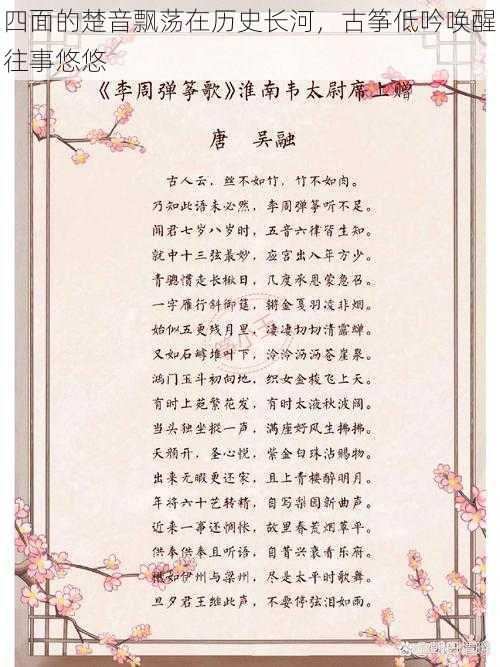 四面的楚音飘荡在历史长河，古筝低吟唤醒
往事悠悠
《李周弹筝歌》淮南韦太尉席上赠
唐 吴融
古人云，丝不如竹，竹不如肉。
乃知此语未必然，李周弹筝听不足。
闻君七岁八岁时，五音六律皆生知。
就中十三弦最妙，应宫出入年方少。
青骢惯走长楸日，几度承恩蒙急召。
一字雁行斜御筵，锵金戛羽凌非烟。
始似五更残月里，凄凄切切清露蝉。
又如石罅堆叶下，泠泠沥沥苍崖泉。
鸿门玉斗初向地，织女金梭飞上天。
有时上苑繁花发，有时太液秋波阔。
当头独坐摐一声，满座好风生拂拂。
天颜开，圣心悦，紫金白珠沾赐物。
出来无暇更还家，且上青楼醉明月。
年将六十艺转精，自写梨园新曲声。
近来一事还惆怅，故里春荒烟草平。
供奉供奉且听语，自昔兴衰看乐府。
只如伊州与梁州，尽是太平时歌舞。
旦夕君王继此声，不要停弦泪如雨。